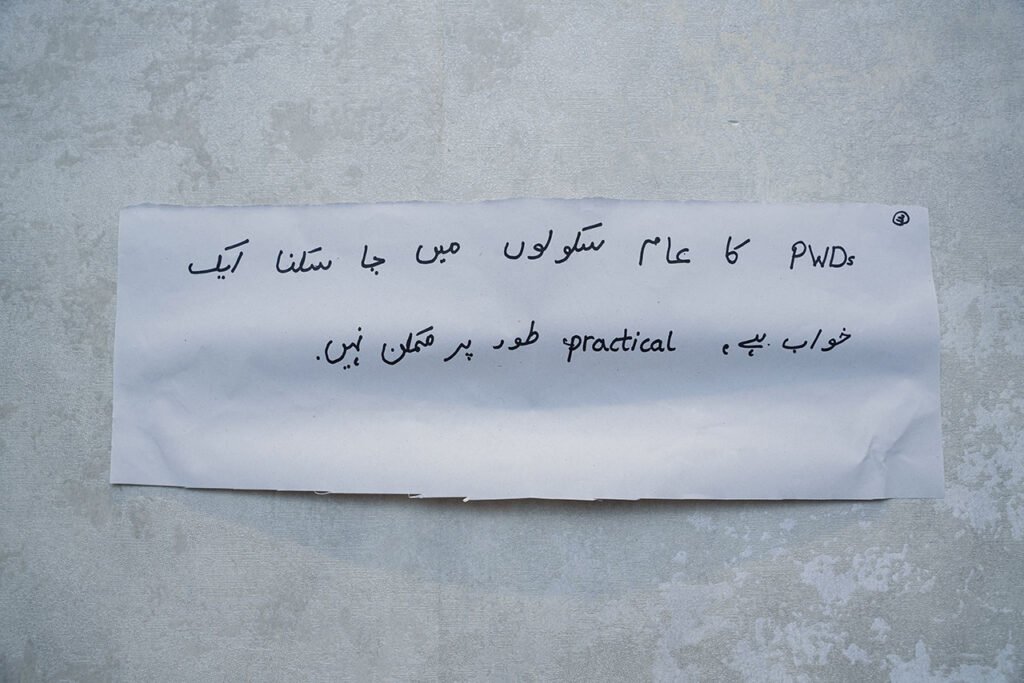 PWDs کا عام سکولوں میں جا سکنا ایک
خواب ہے، practical طور پر ممکن نہیں.